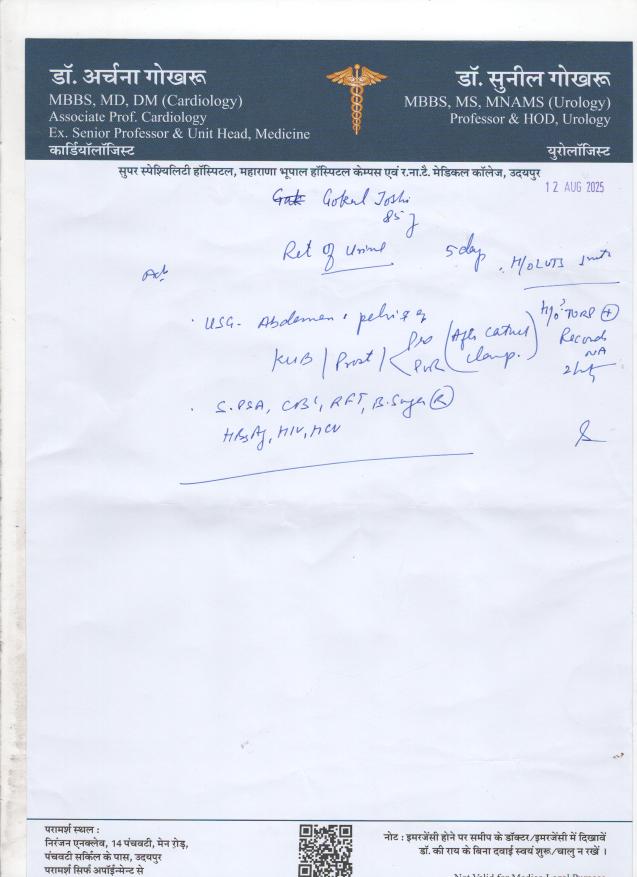 डॉ. अर्चना गोखरू
MBBS, MD, DM (Cardiology)
Associate Prof. Cardiology
Ex. Senior Professor & Unit Head, Medicine
कार्डियॉलॉजिस्ट
डॉ. सुनील गोखरू
MBBS, MS, MNAMS (Urology)
Professor & HOD, Urology
युरोलॉजिस्ट
सुपर स्पेश्यिलिटी हॉस्पिटल, महाराणा भूपाल हॉस्पिटल केम्पस एवं र.ना.टै. मेडिकल कॉलेज, उदयपुर
12 AUG 2025
Gokul Joshi
85 y
Ret of Urine 5 day H/O LUTS
USG - Abdomen & pelvis
KUB / Prost / Pre PVR (After catheter clamp.)
H/O TURP +
Records
NA
S. PSA, CBC, RFT, B. Sugar (R)
HBsAg, HIV, HCV
परामर्श स्थल :
निरंजन एनक्लेव, 14 पंचवटी, मेन रोड़,
पंचवटी सर्किल के पास, उदयपुर
परामर्श सिर्फ अपॉईन्मेन्ट से
नोट : इमरजेंसी होने पर समीप के डॉक्टर/इमरजेंसी में दिखावें
डॉ. की राय के बिना दवाई स्वयं शुरू/चालु न रखें ।